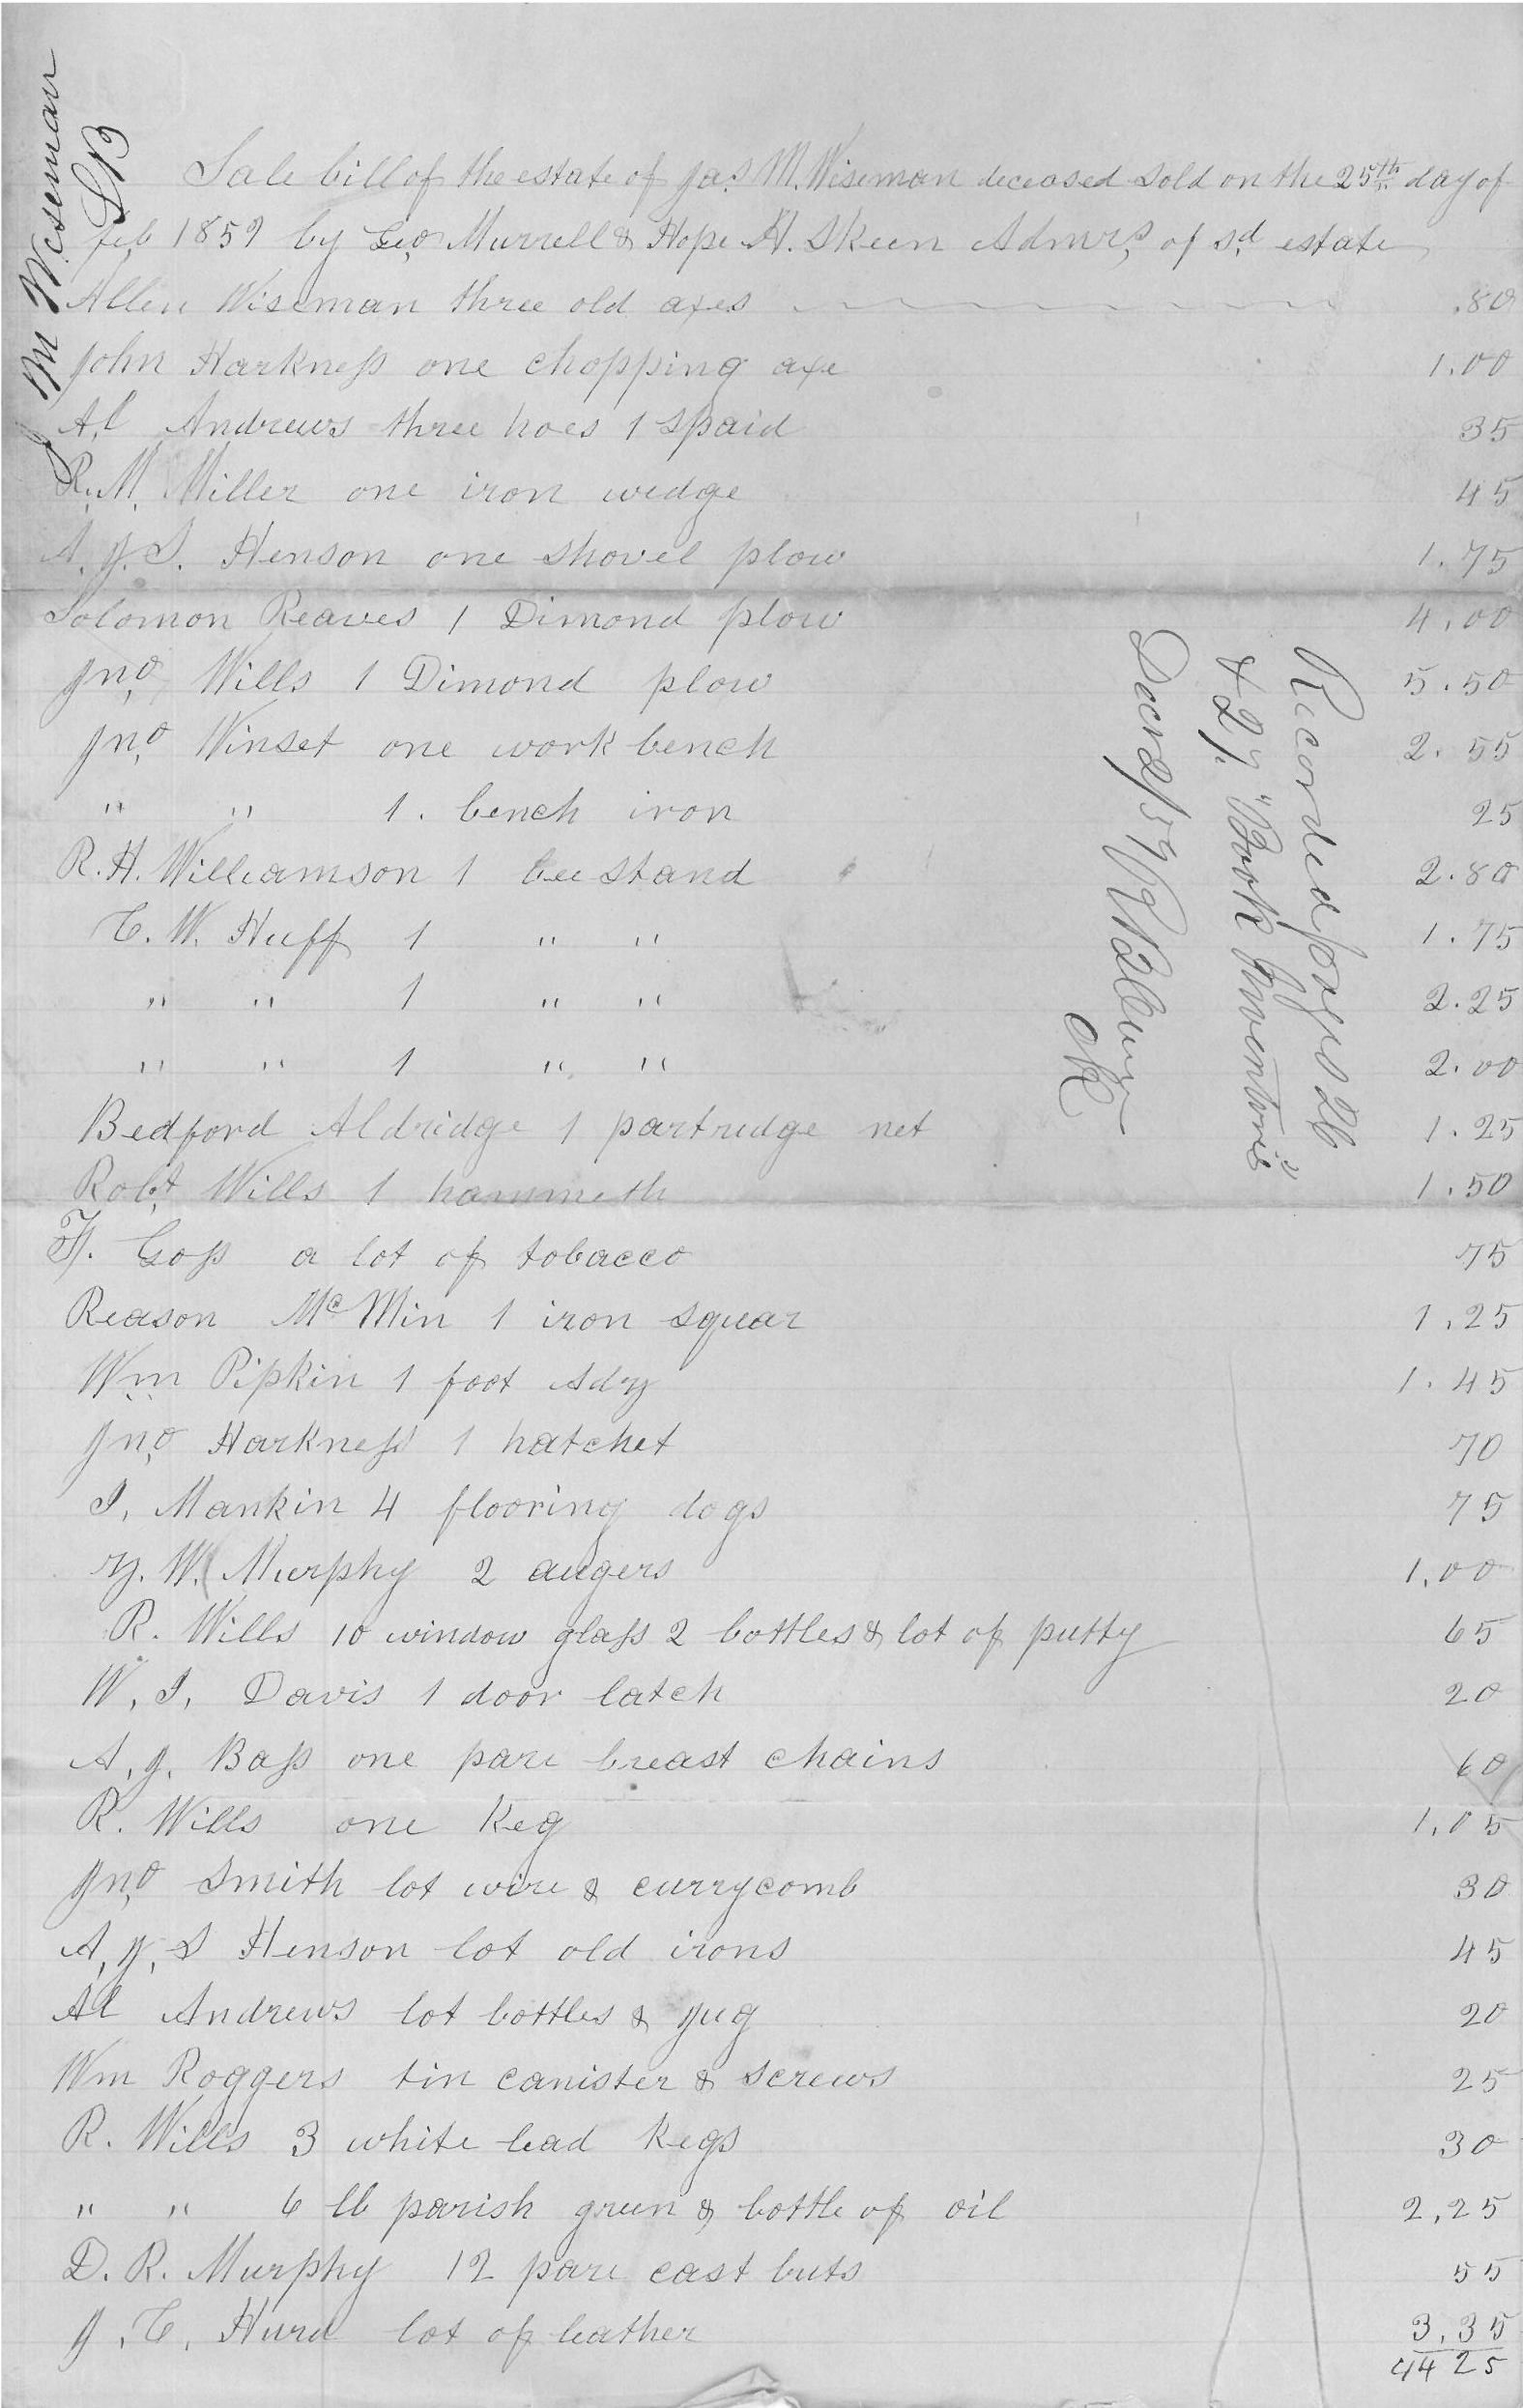 J M Wiseman
SB
Sale bill of the estate of Jas. M. Wiseman deceased sold on the 25th day of
feb 1859 by Geo. Murrell & Hope H. Skeen Admrs, of sd. estate
Allen Wiseman three old axes .80
John Harkness one chopping axe 1.00
Al Andrews three hoes 1 spaid 35
R. M. Miller one iron wedge 45
A. J. S. Henson one shovel plow 1.75
Solomon Reaves 1 Dimond plow 4.00
Jno. Wills 1 Dimond plow 5.50
Jno. Winset one work bench 2.55
" " 1. bench iron 25
R. H. Williamson 1 bee stand 2.80
C. W. Huff 1 " " 1.75
" " 1 " " 2.25
" " 1 " " 2.00
Bedford Aldridge 1 partrudge net 1.25
Robt. Wills 1 hammeth 1.50
F. Goss a lot of tobacco 75
Reason McMin 1 iron squar 1.25
Wm Pipkin 1 foot Adz 1.45
Jno. Harkness 1 hatchet 70
I. Mankin 4 flooring dogs 75
W. Murphy 2 augers 1.00
R. Wills 10 window glass 2 bottles & lot of putty 65
W. I. Davis 1 door latch 20
A. J. Bass one pare breast chains 60
R. Wills one keg 1.05
Jno. Smith lot wire & currycomb 30
A. J. S Henson lot old irons 45
Al Andrews lot bottles & jug 20
Wm Roggers tin canister & screws 25
R. Wills 3 white lead kegs 30
" " 6 lb parish green & bottle of oil 2,25
D. R. Murphy 12 pare cast buts 55
J. C. Hurd lot of leather 3,35
44 25
Recorded pages 26
& 27 "Book Inventories
Decr 2/59
Clk